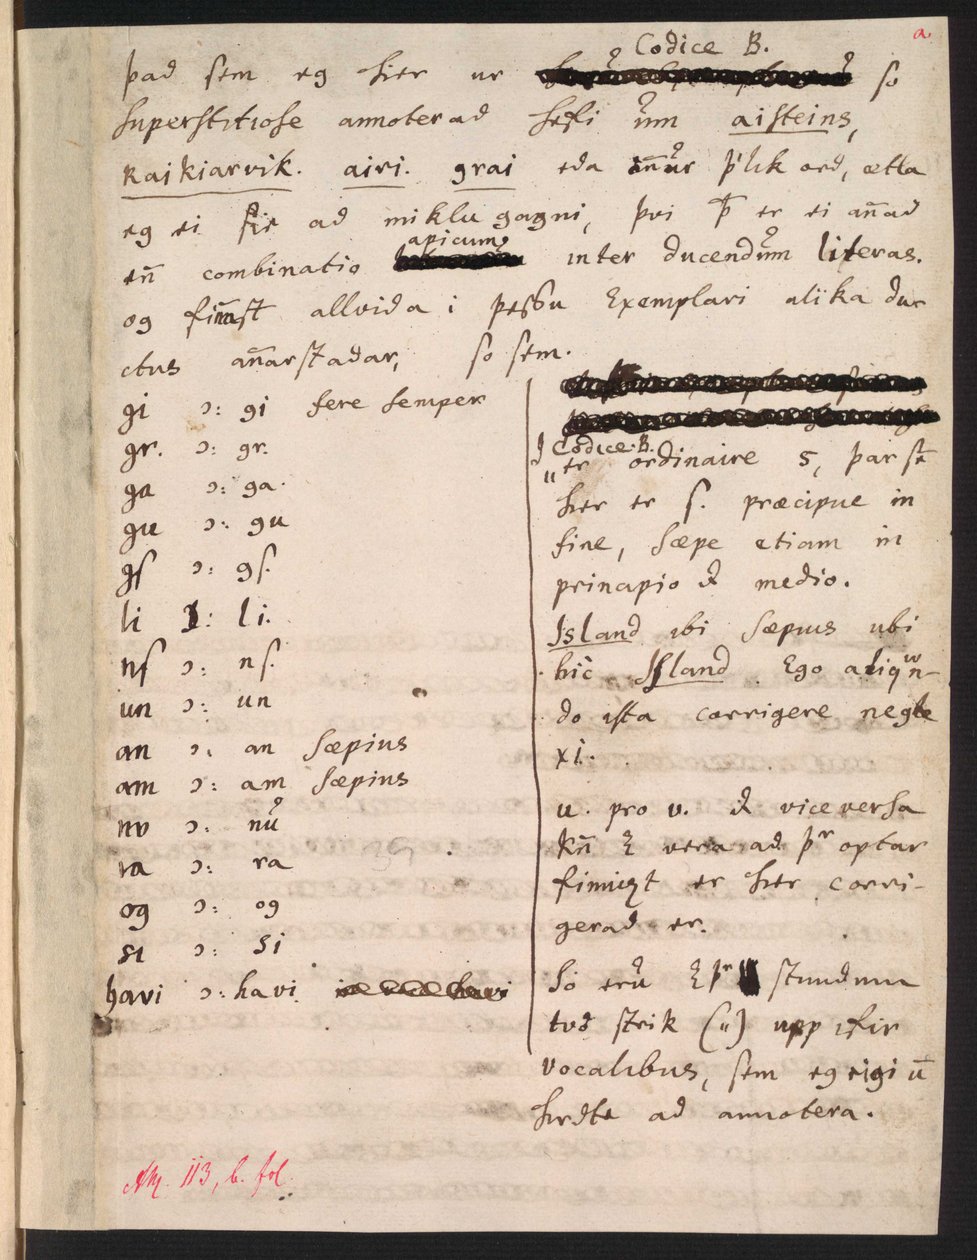 a.
Codice B.
þad sem eg hier ur so
superstitiose annoterad hefi um aisteins,
Raikiarvik. airi. grai eda
eg ei ad miklu gagni, þvi þ̄ er ei an̄ad
en̄ combinatio apicum inter ducendum literas.
og allvida i þessu Exemplari alika duc
ctus an̄arstadar, so sem.
gi ɔ: gi fere semper
gr. ɔ: gr.
ga ɔ: ga.
gu ɔ: gu
gſ ɔ: gſ.
li ɔ: li.
nſ ɔ: nſ.
un ɔ: un
an ɔ: an sæpius
am ɔ: am sæpius
nv ɔ: nu
ra ɔ: ra
og ɔ: og
si ɔ: si
havi ɔ: havi
J Codice B.
er ordinaire s, þar sē
hier er ſ. præcipue in
fine, sæpe etiam in
principio & medio.
Island ibi sæpius ubi
hic Iſland. Ego aliqvn-
do ista corrigere negle
xi.
u. pro v. & vice versa
optar
er hier corri-
gerad er.
So eru stundum
tvö strik (") upp ifir
vocalibus, sem eg eigi
hirdte ad annotera.
AM. 113, b. fol.